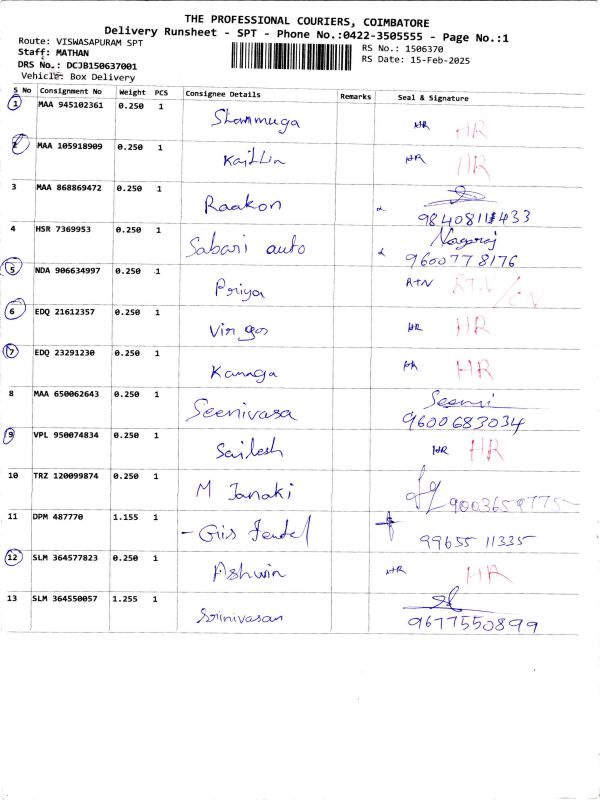 THE PROFESSIONAL COURIERS, COIMBATORE
Delivery Runsheet - SPT - Phone No.:0422-3505555 - Page No.:1
Route: VISWASAPURAM SPT
Staff: MATHAN
DRS No.: DCJB150637001
Vehicle: Box Delivery
RS No.: 1506370
RS Date: 15-Feb-2025
S No Consignment No Weight PCS Consignee Details Remarks Seal & Signature
1 MAA 945102361 0.250 1 Shanmuga HR HR
2 MAA 105918909 0.250 1 HR HR
3 MAA 868869472 0.250 1 Raakon
4 HSR 7369953 0.250 1 Sabari auto Nagaraj 9600778176
5 NDA 906634997 0.250 1 Priya RTN RTN
6 EDQ 21612357 0.250 1 HR HR
7 EDQ 23291230 0.250 1 Kannga HR HR
8 MAA 650062643 0.250 1 Seenivasa Seeni 9600683034
9 VPL 950074834 0.250 1 Sailesh HR HR
10 TRZ 120099874 0.250 1 M Janaki 9003659775
11 DPM 487770 1.155 1 99655 11335
12 SLM 364577823 0.250 1 Ashwin HR HR
13 SLM 364550057 1.255 1 Srinivasan 9677550899